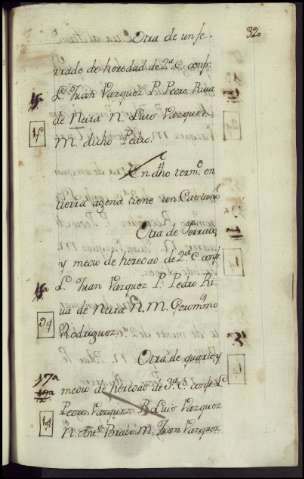 32
Otra de un fe-
rrado de heredad de 2ª C. confª
L. Juan Vazquez P. Pedro Riua
de Neira N. Luis Vazquez
M. dicho Pedro.
En dho termº en
tierra agena tiene un Castaño
Otra de ferrado
y medio de heredad de 2ª C. confª
L. Juan Vazquez P. Pedro Ri-
ua de Neira N. M. Geronimo
Rodriguez
Otra de quarto y
medio de heredad de 3ª C. confª L.
Pedro Vazquez P. Luis Vazquez
N. Antº Bravo M. Juan Vazquez